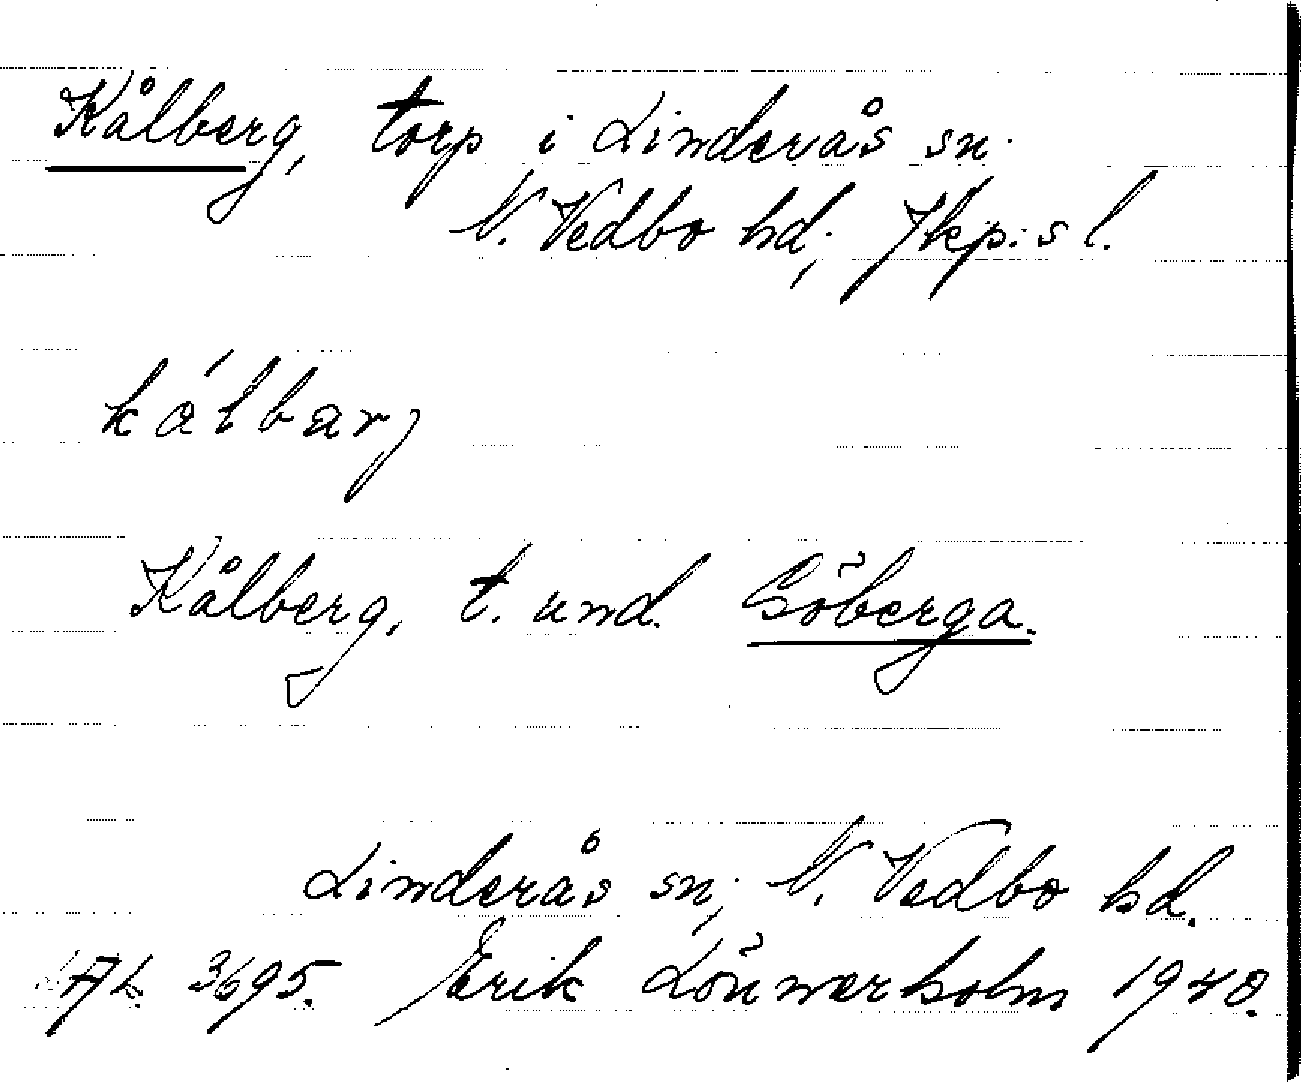 Kålberg, torp i Linderås sn.
N. Vedbo hd; Jkp:s l.
kálbarj
Kålberg, t. und. Göberga.
Linderås sn; N. Vedbo hd.
3695. Erik Lönnerholm 1940.